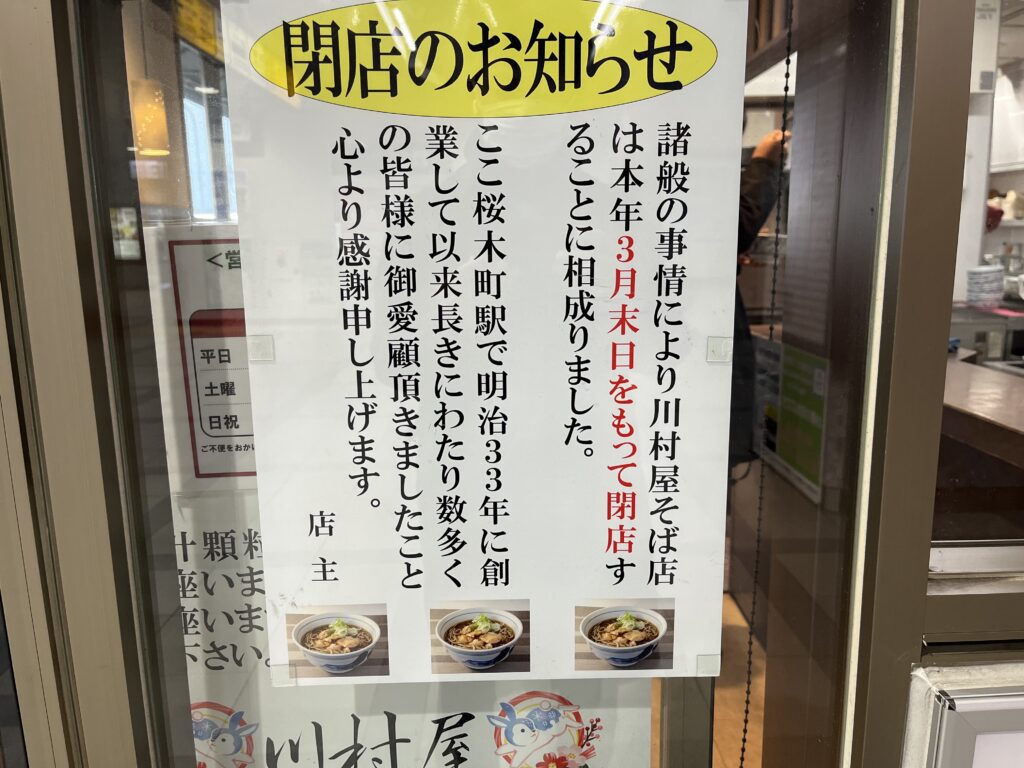 閉店のお知らせ
諸般の事情により川村屋そば店
は本年3月末日をもって閉店す
ることに相成りました。
ここ桜木町駅で明治33年に創
業して以来長きにわたり数多く
の皆様に御愛顧頂きましたこと
心より感謝申し上げます。
店主
<営
平日
土曜
日祝
ご不便をおか
川村屋